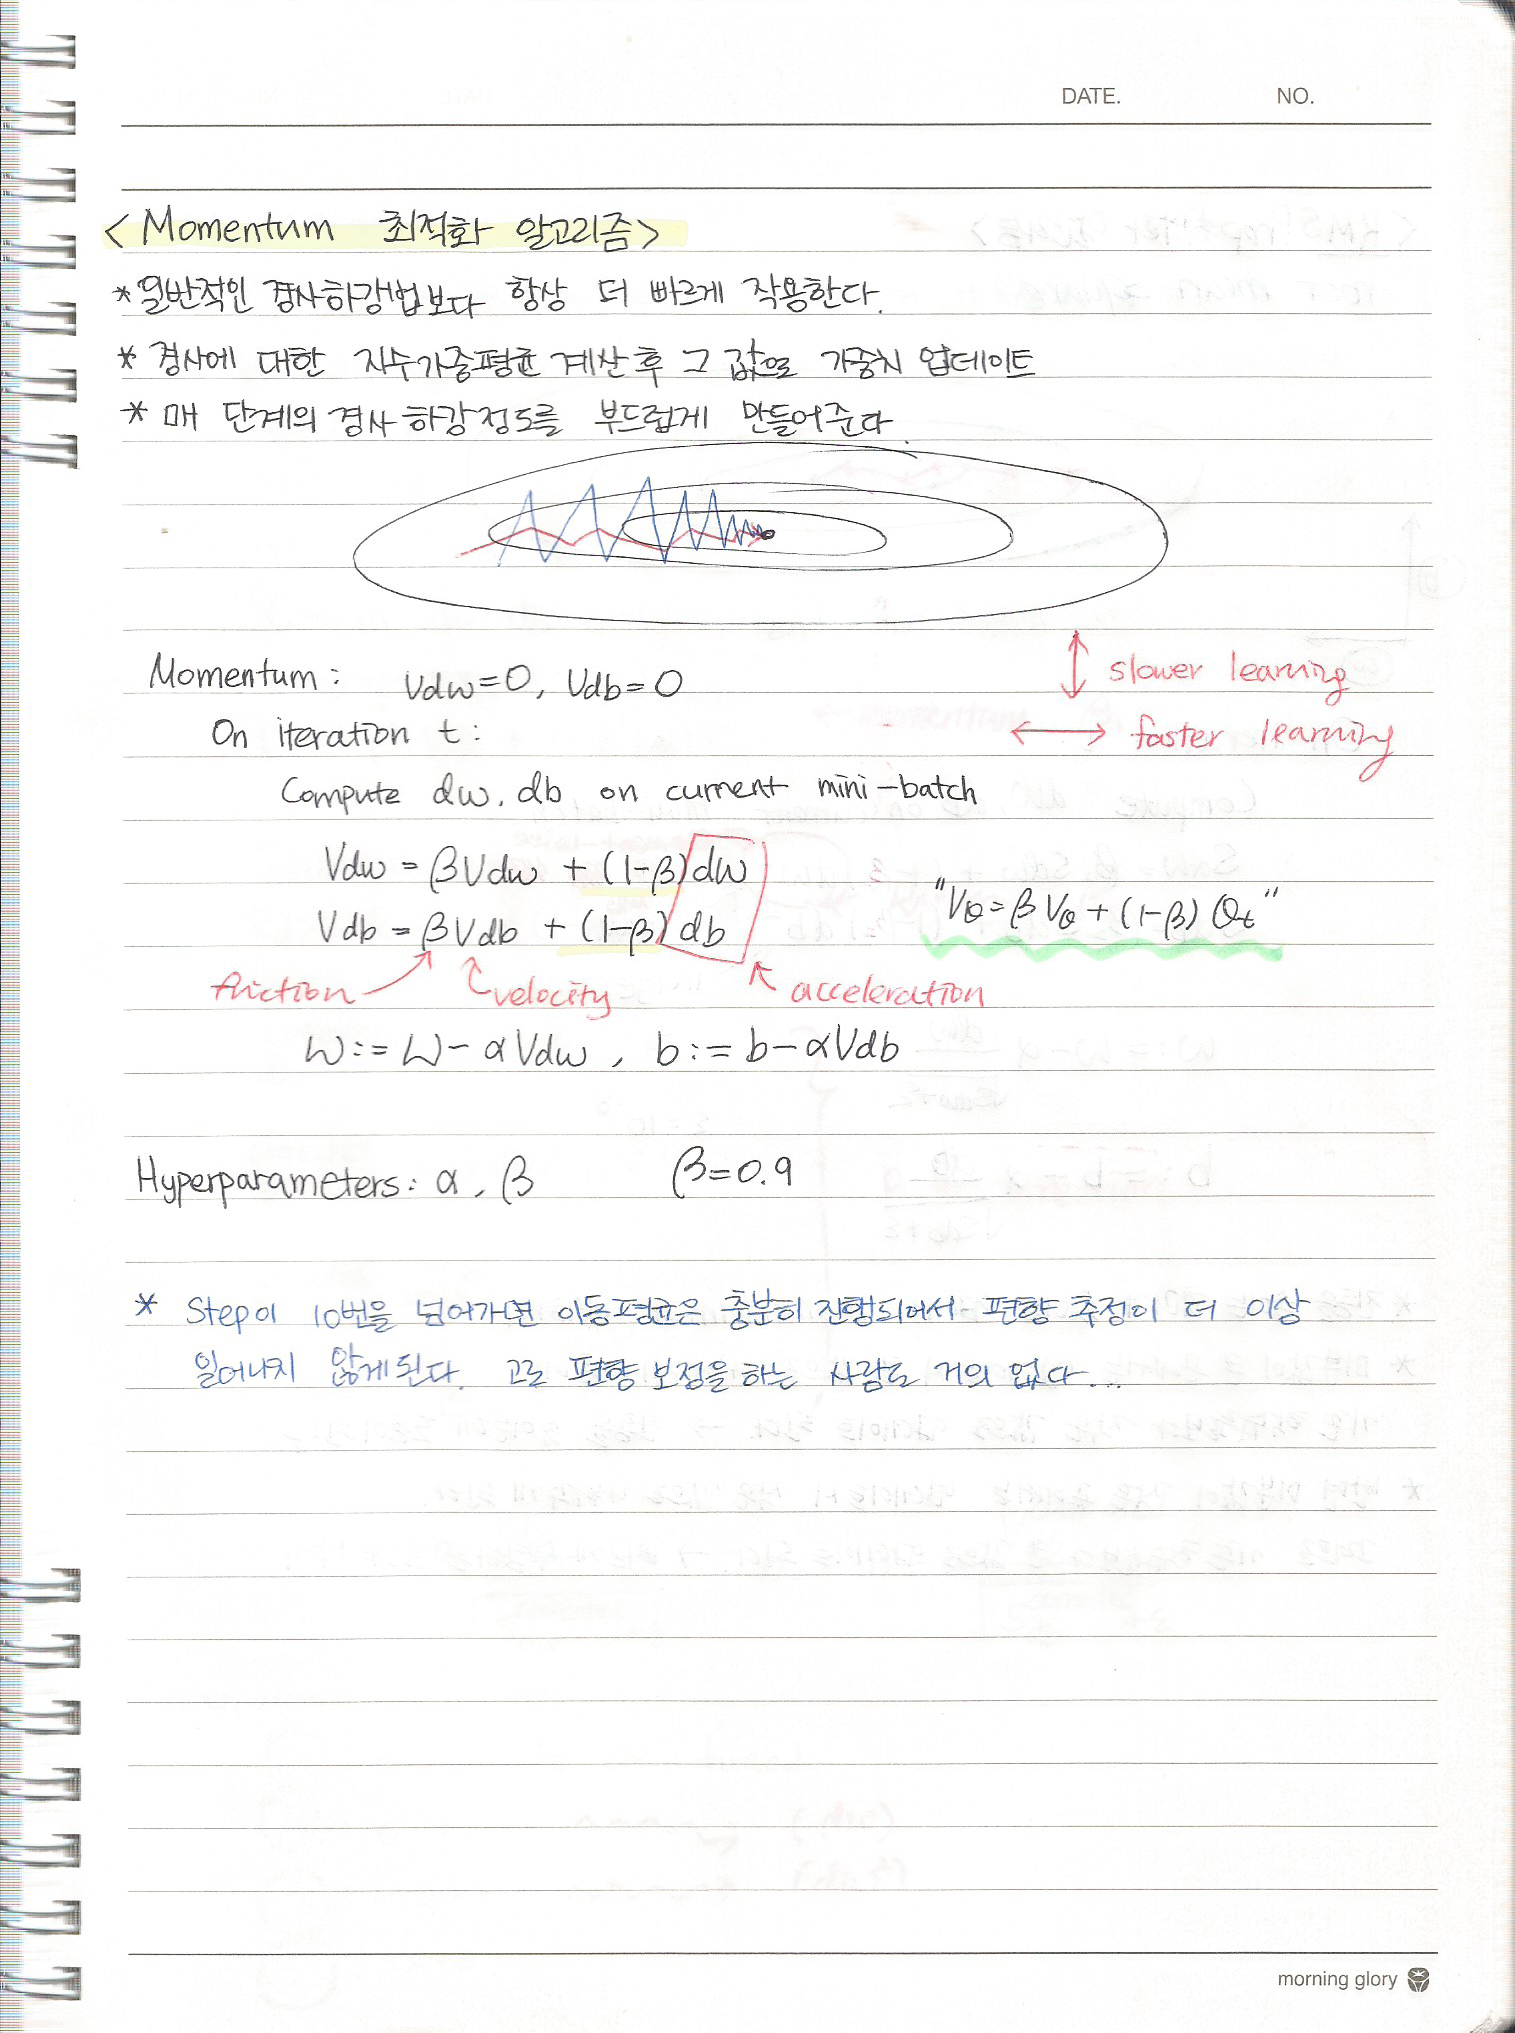 DATE. NO.
<Momentum 최적화 알고리즘>
*일반적인 경사하강법보다 항상 더 빠르게 작용한다.
* 경사에 대한 지수가중평균 계산 후 그 값으로 가중치 업데이트
* 매 단계의 경사 하강 정도를 부드럽게 만들어준다.
Momentum: Vdw=0, Vdb=0
slower learning
On iteration t:
faster learning
Compute dw, db on current mini-batch
Vdw = βVdw + (1-β)dw
"Vθ = βVθ + (1-β)θt"
Vdb = βVdb + (1-β)db
friction velocity acceleration
W := W - αVdw, b := b - αVdb
Hyperparameters: α, β β=0.9
* Step이 10번을 넘어가면 이동평균은 충분히 진행되어서 편향 추정이 더 이상
일어나지 않게된다. 고로 편향 보정을 하는 사람도 거의 없다...
morning glory